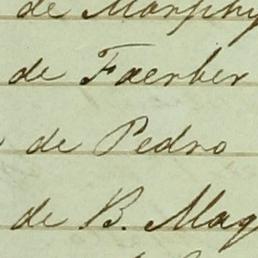 de Murphy
de Faerber
de Pedro
de B. Mag